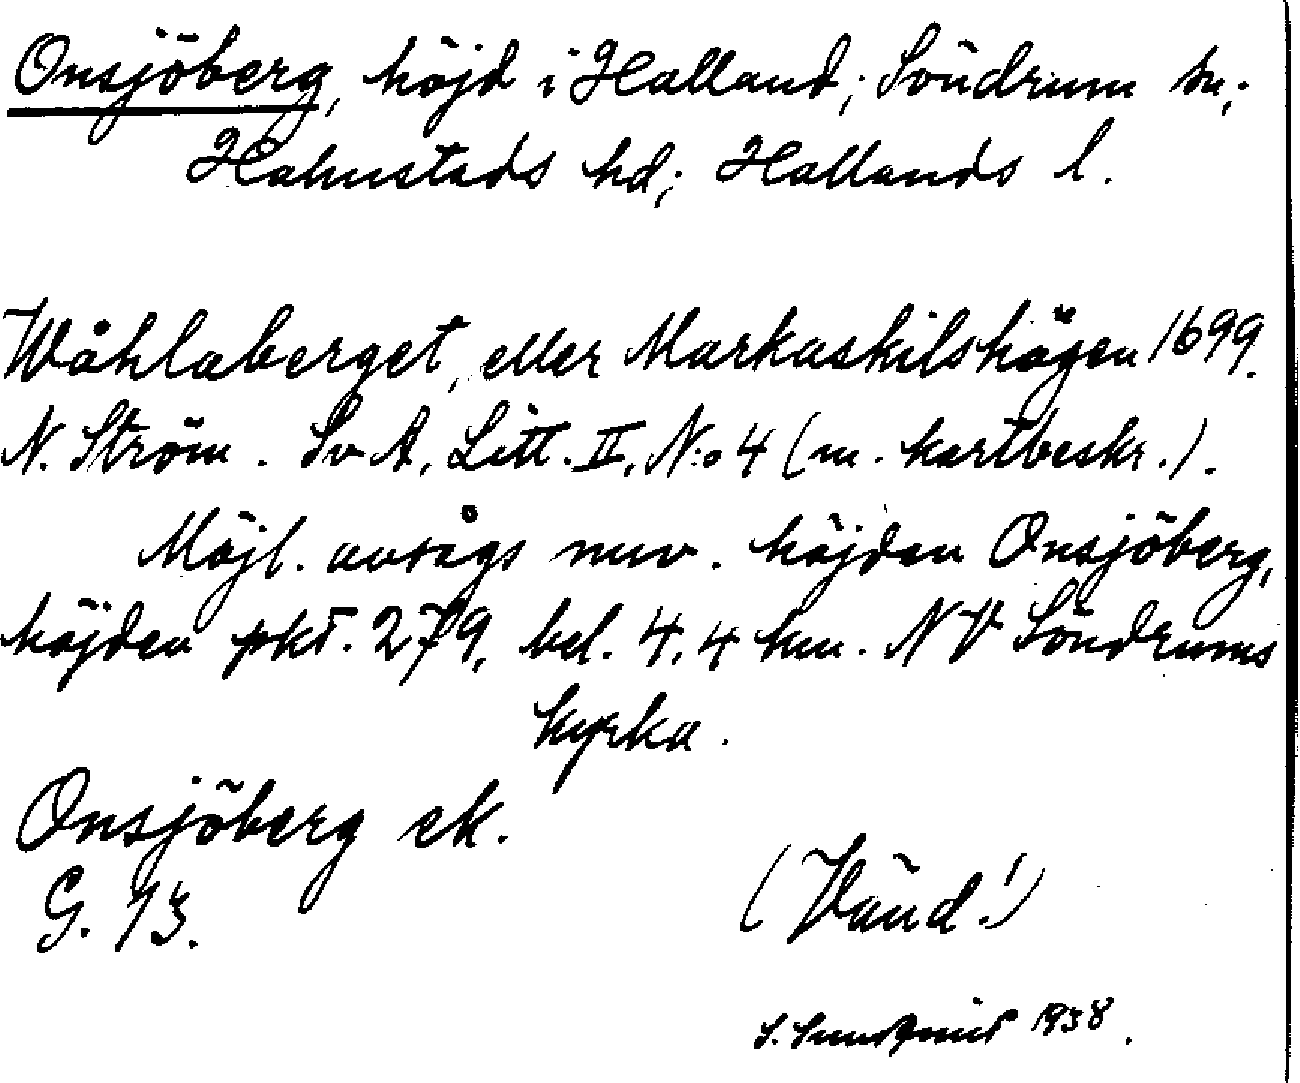 Onsjöberg, höjd i Halland; Söndrum sn;
Halmstads hd; Hallands l.
Wåhlaberget, eller Markaskilshögen 1699.
N. Ström. Sv A, Litt. II, N:o 4 (m. kartbeskr.).
Möjl. avsågs nuv. höjden Onsjöberg,
höjden pkt. 279, bel. 4,4 km. NV Söndrums
kyrka.
Onsjöberg ek.
G. 13.
(Vänd!)
S. 1938.